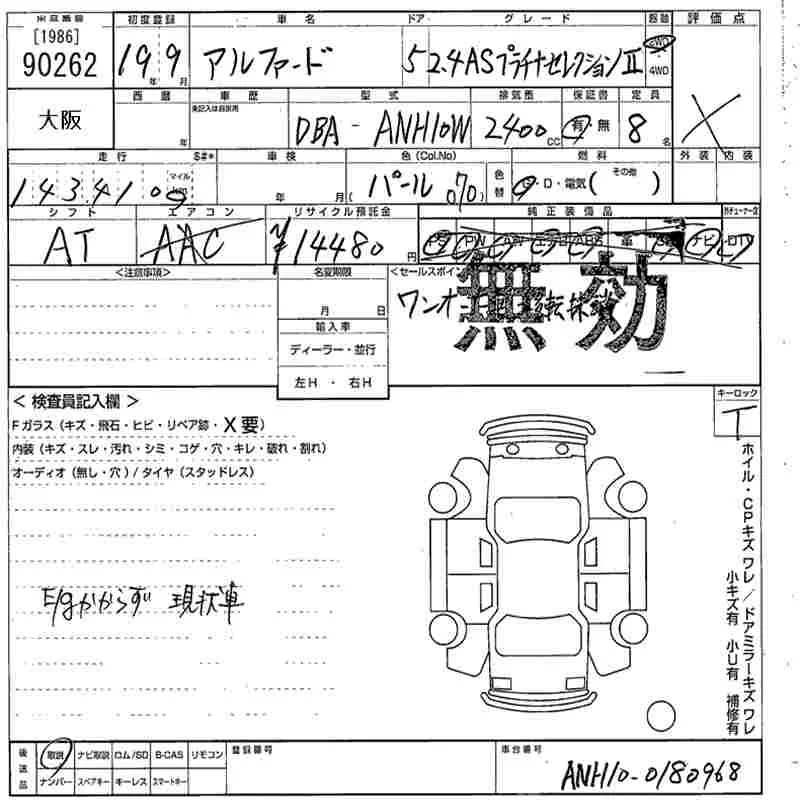 [1986]
90262
初度登録 車名 ドア グレード 駆動 評価点
19年 9月 アルファード 5 2.4ASプラチナセレクションⅡ 2WD 4WD X
大阪
西暦 車歴 型式 排気量 保証書 定員
年 未記入は自家用 DBA-ANH10W 2400CC 有・無 8名
走行 S#* 車検 色(Col.No) 色替 燃料 外装 内装
143410 マイル km 年 月 パール(070) G・D・電気( その他 )
シフト エアコン リサイクル預託金 純正装備品
AT AAC ¥14480円 PS PW AW エアB ABS 革 SR ナビ DTV
<注意事項> 名変期限 <セールスポイント>
無効
月 日
輸入車
ディーラー・並行
左H ・ 右H
キーロック
T
<検査員記入欄>
Fガラス(キズ・飛石・ヒビ・リペア跡・X要)
内装(キズ・スレ・汚れ・シミ・コゲ・穴・キレ・破れ・割れ)
オーディオ(無し・穴)/タイヤ(スタッドレス)
E/gかからず 現状車
ホイル・CPキズワレ/ドアミラーキズワレ
小キズ有 小U有 補修有
後送品 取説 ナビ取説 ロム/SD B-CAS リモコン 登録番号 車台番号
ナンバー スペアキー キーレス スマートキー
ANH10-0180968